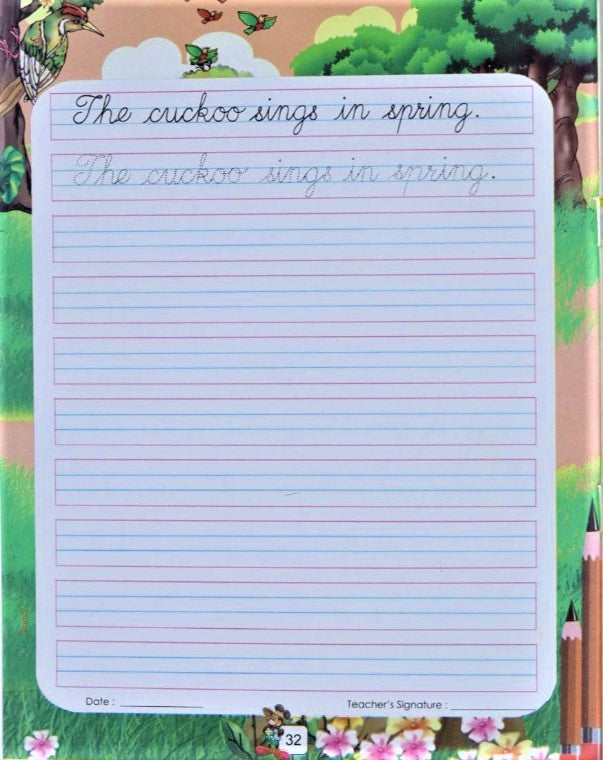 The cuckoo sings in spring.
The cuckoo sings in spring.
Date : ____________ Teacher's Signature : ____________
32